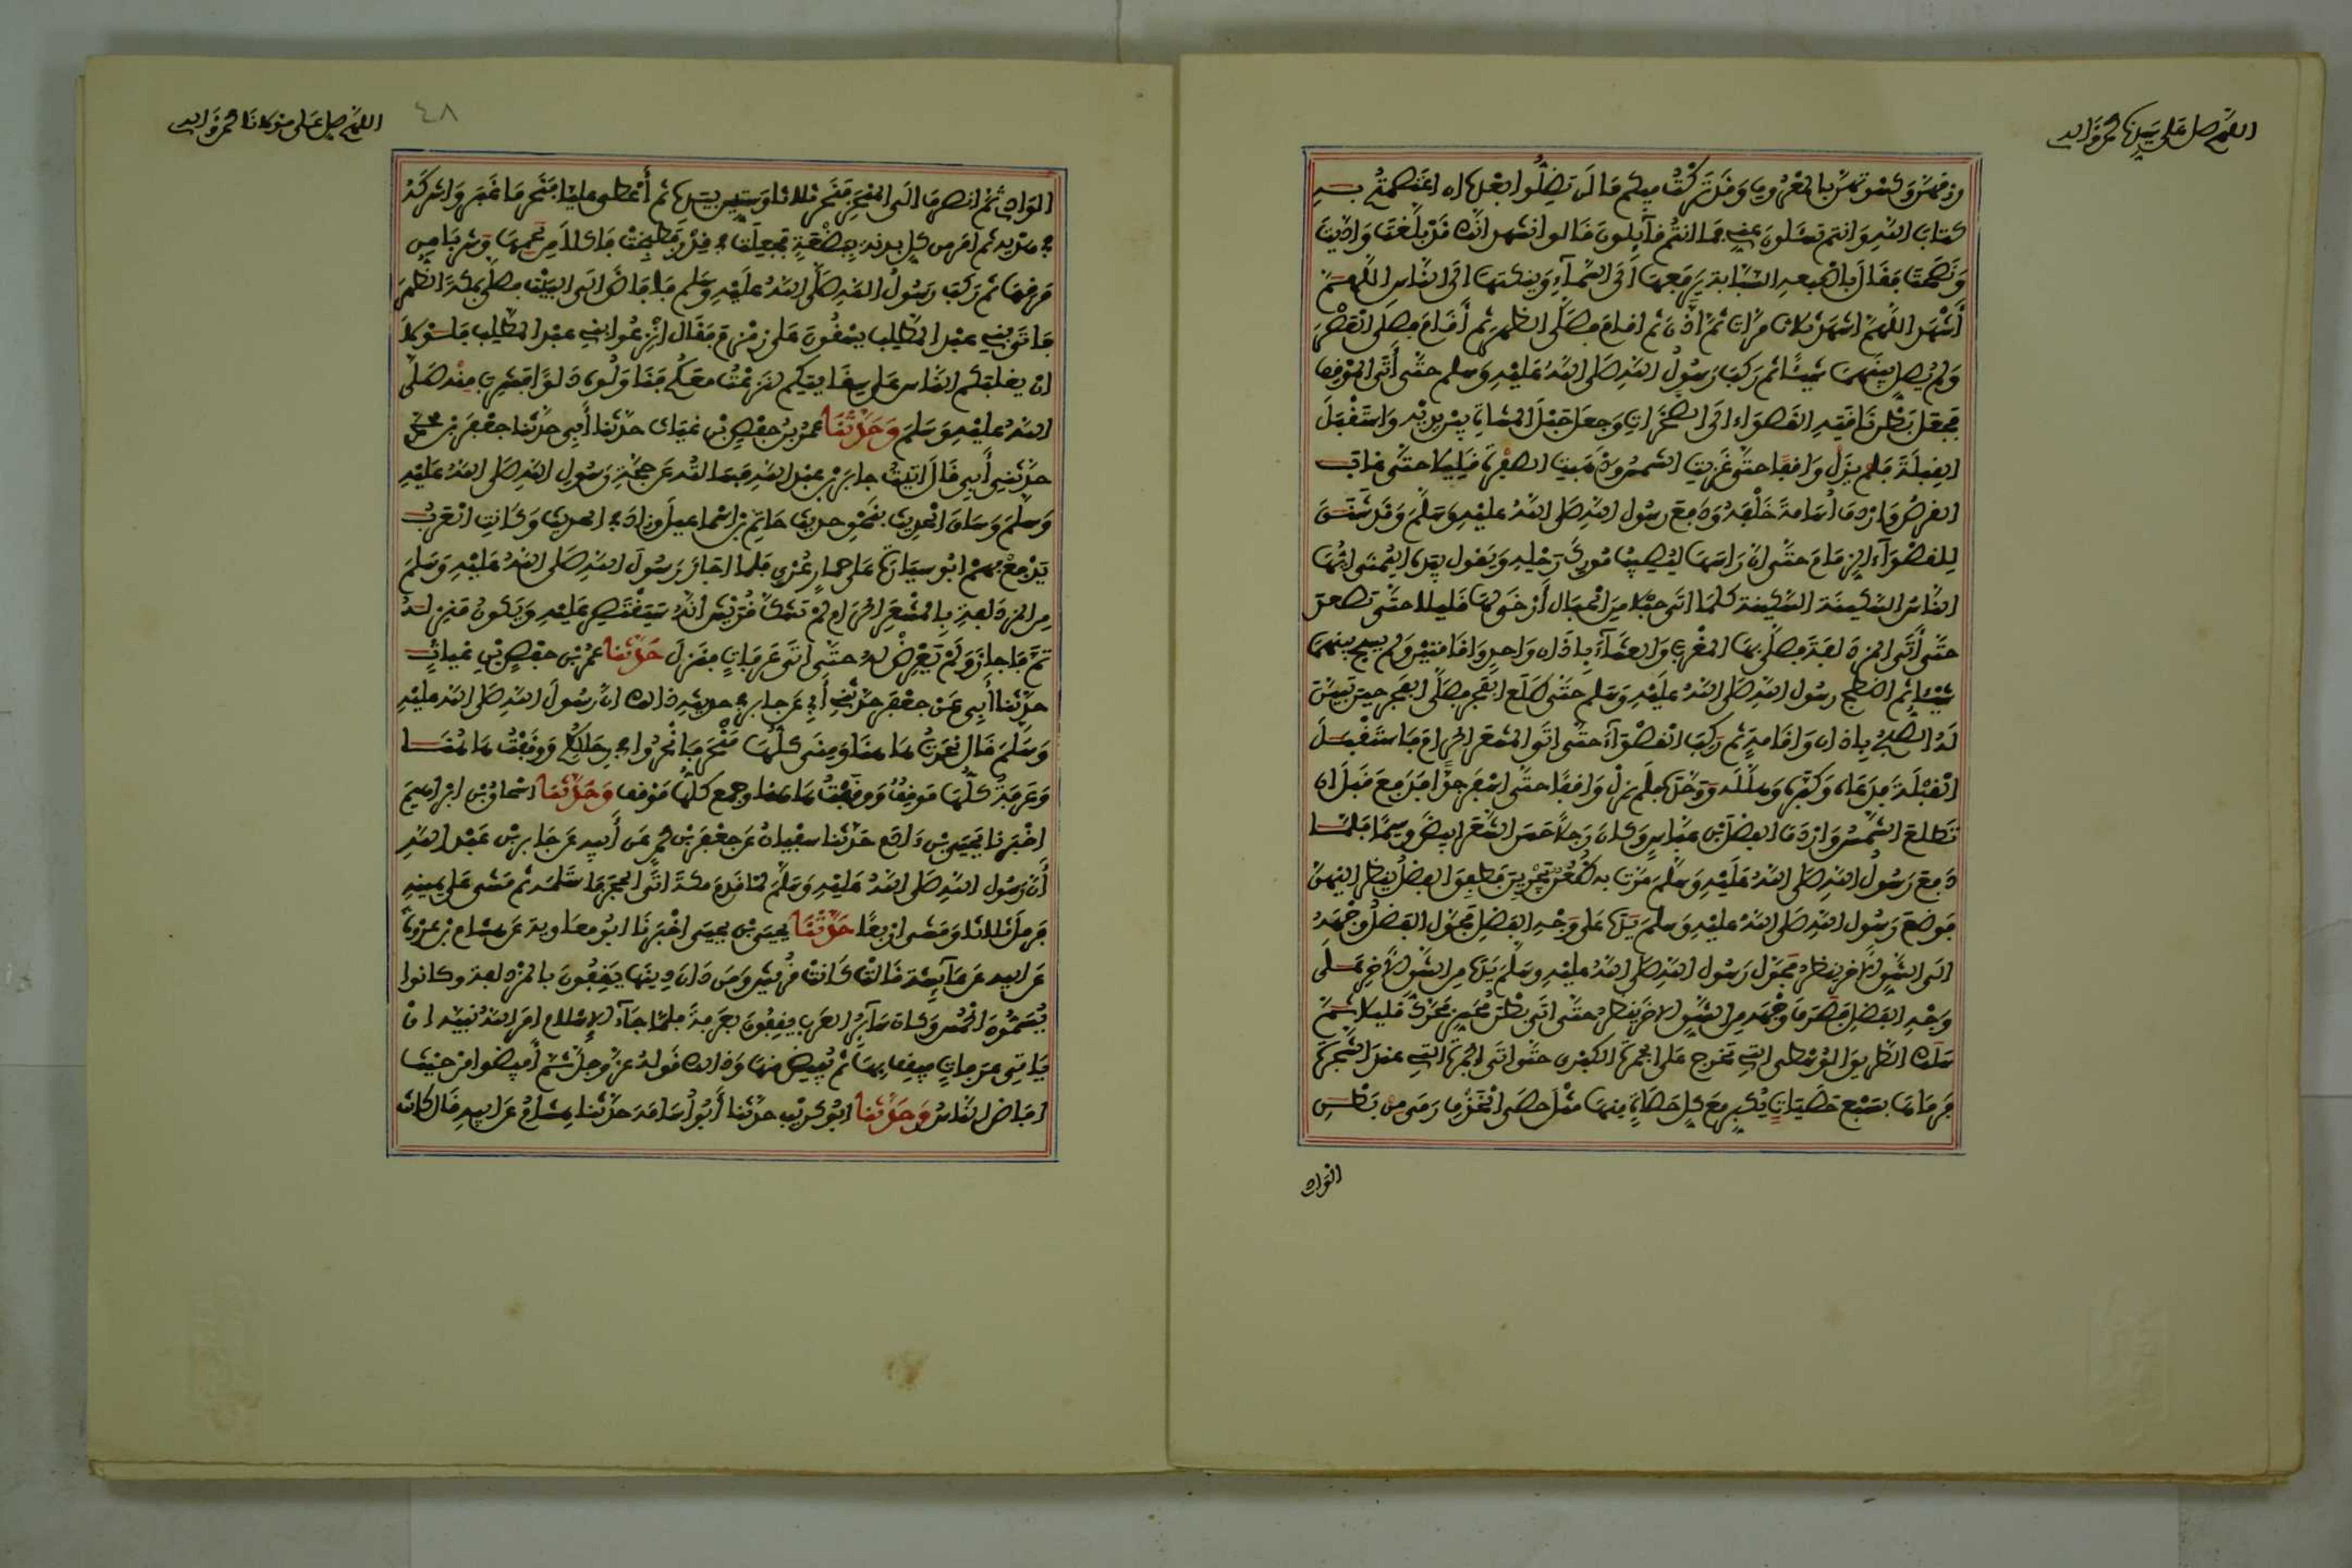 اللهم صل على سيدنا محمد وآله
رزقهن وكسوتهن بالمعروف وقد تركت فيكم ما لن تضلوا بعده ان اعتصمتم به
كتاب الله وانتم تسئلون عني فما انتم قائلون قالوا نشهد انك قد بلغت واديت
ونصحت فقال باصبعه السبابة يرفعها الى السماء وينكتها الى الناس اللهم
أشهد اللهم اشهد ثلاث مرات ثم اذن ثم اقام فصلى الظهر ثم أقام فصلى العصر
ولم يصل بينهما شيئا ثم ركب رسول الله صلى الله عليه وسلم حتى أتى الموقف
فجعل بطن ناقته القصواء الى الصخرات وجعل حبل المشاة بين يديه واستقبل
القبلة فلم يزل واقفا حتى غربت الشمس وذهبت الصفرة قليلا حتى غاب
القرص واردف أسامة خلفه ودفع رسول الله صلى الله عليه وسلم وقد شنق
للقصواء الزمام حتى ان راسها ليصيب مورك رحله ويقول بيده اليمنى ايها
الناس السكينة السكينة كلما اتى حبلا من الحبال أرخى لها قليلا حتى تصعد
حتى أتى المزدلفة فصلى بها المغرب والعشاء باذان واحد واقامتين ولم يسبح بينهما
شيئا ثم اضطجع رسول الله صلى الله عليه وسلم حتى طلع الفجر فصلى الفجر حين تبين
له الصبح باذان واقامة ثم ركب القصواء حتى اتى المشعر الحرام فاستقبل
القبلة فدعاه وكبره وهلله ووحده فلم يزل واقفا حتى اسفر جدا فدفع قبل ان
تطلع الشمس واردف الفضل بن عباس وكان رجلا حسن الشعر ابيض وسيما فلما
دفع رسول الله صلى الله عليه وسلم مرت به ظعن يجرين فطفق الفضل ينظر اليهن
فوضع رسول الله صلى الله عليه وسلم يده على وجه الفضل فحول الفضل وجهه
الى الشق الاخر ينظر فحول رسول الله صلى الله عليه وسلم يده من الشق الاخر على
وجه الفضل فصرف وجهه من الشق الاخر ينظر حتى اتى بطن محسر فحرك قليلا ثم
سلك الطريق الوسطى التي تخرج على الجمرة الكبرى حتى اتى الجمرة التي عند الشجرة
فرماها بسبع حصيات يكبر مع كل حصاة منها مثل حصى الخذف رمى من بطن
الوادي
اللهم صل على مولانا محمد وآله
٤٨
الوادي ثم انصرف الى المنحر فنحر ثلاثا وستين بيده ثم أعطى عليا فنحر ما غبر واشركه
في هديه ثم امر من كل بدنة ببضعة فجعلت في قدر فطبخت فاكلا من لحمها وشربا من
مرقها ثم ركب رسول الله صلى الله عليه وسلم فافاض الى البيت فصلى بمكة الظهر
فاتى بني عبد المطلب يسقون على زمزم فقال انزعوا بني عبد المطلب فلولا
ان يغلبكم الناس على سقايتكم لنزعت معكم فناولوه دلوا فشرب منه صلى
الله عليه وسلم وحدثنا عمر بن حفص بن غياث حدثنا أبي حدثنا جعفر بن محمد
حدثني أبي قال اتيت جابر بن عبد الله فسالته عن حجة رسول الله صلى الله عليه
وسلم وساق الحديث بنحو حديث حاتم بن اسماعيل وزاد في الحديث وكانت العرب
يدفع بهم ابو سيارة على حمار عري فلما اجاز رسول الله صلى الله عليه وسلم
من المزدلفة بالمشعر الحرام لم تشك قريش انه سيقتصر عليه ويكون منزله
ثم فاجاز ولم يعرض له حتى اتى عرفات فنزل حدثنا عمر بن حفص بن غياث
حدثنا أبي عن جعفر حدثني أبي عن جابر في حديثه ذلك ان رسول الله صلى الله عليه
وسلم قال نحرت هاهنا ومنى كلها منحر فانحروا في رحالكم ووقفت هاهنا
وعرفة كلها موقف ووقفت هاهنا وجمع كلها موقف وحدثنا اسحاق بن ابراهيم
اخبرنا يحيى بن ءادم حدثنا سفيان عن جعفر بن محمد عن أبيه عن جابر بن عبد الله
أن رسول الله صلى الله عليه وسلم لما قدم مكة اتى الحجر فاستلمه ثم مشى على يمينه
فرمل ثلاثا ومشى اربعا حدثنا يحيى بن يحيى اخبرنا ابو معاوية عن هشام بن عروة
عن ابيه عن عائشة قالت كانت قريش ومن دان دينها يقفون بالمزدلفة وكانوا
يسمون الحمس وكان سائر العرب يقفون بعرفة فلما جاء الإسلام امر الله نبيه ان
ياتي عرفات فيقف بها ثم يفيض منها وذلك قوله عز وجل ثم أفيضوا من حيث
افاض الناس وحدثنا ابو كريب حدثنا أبو أسامة حدثنا هشام عن ابيه قال كانت